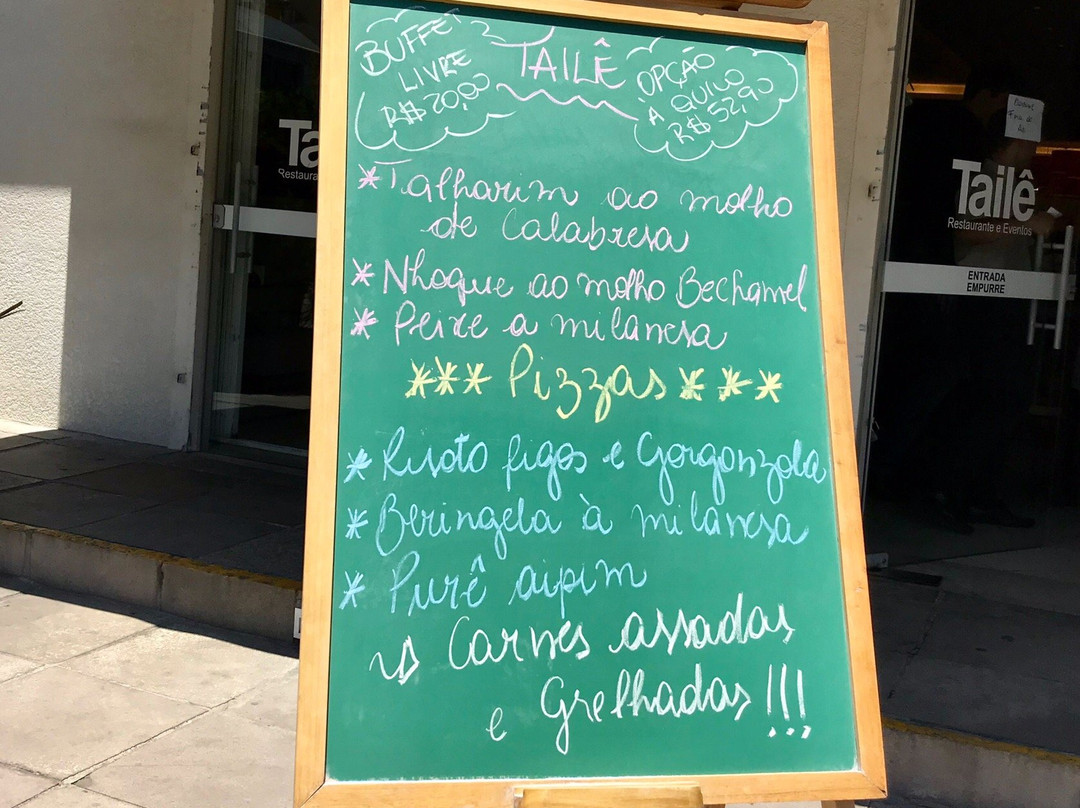 BUFFET
LIVRE
R$ 20,00
TAILÊ
OPÇÃO
À QUILO
R$ 52,90
*Talharim ao molho
de Calabresa
* Nhoque ao molho Bechamel
* Peixe a milanesa
*** Pizzas ***
* Risoto figos e Gorgonzola
* Beringela à milanesa
* Purê aipim
Carnes assadas
e Grelhadas!!!
Ta
Restaura
Tailê
Restaurante e Eventos
ENTRADA
EMPURRE